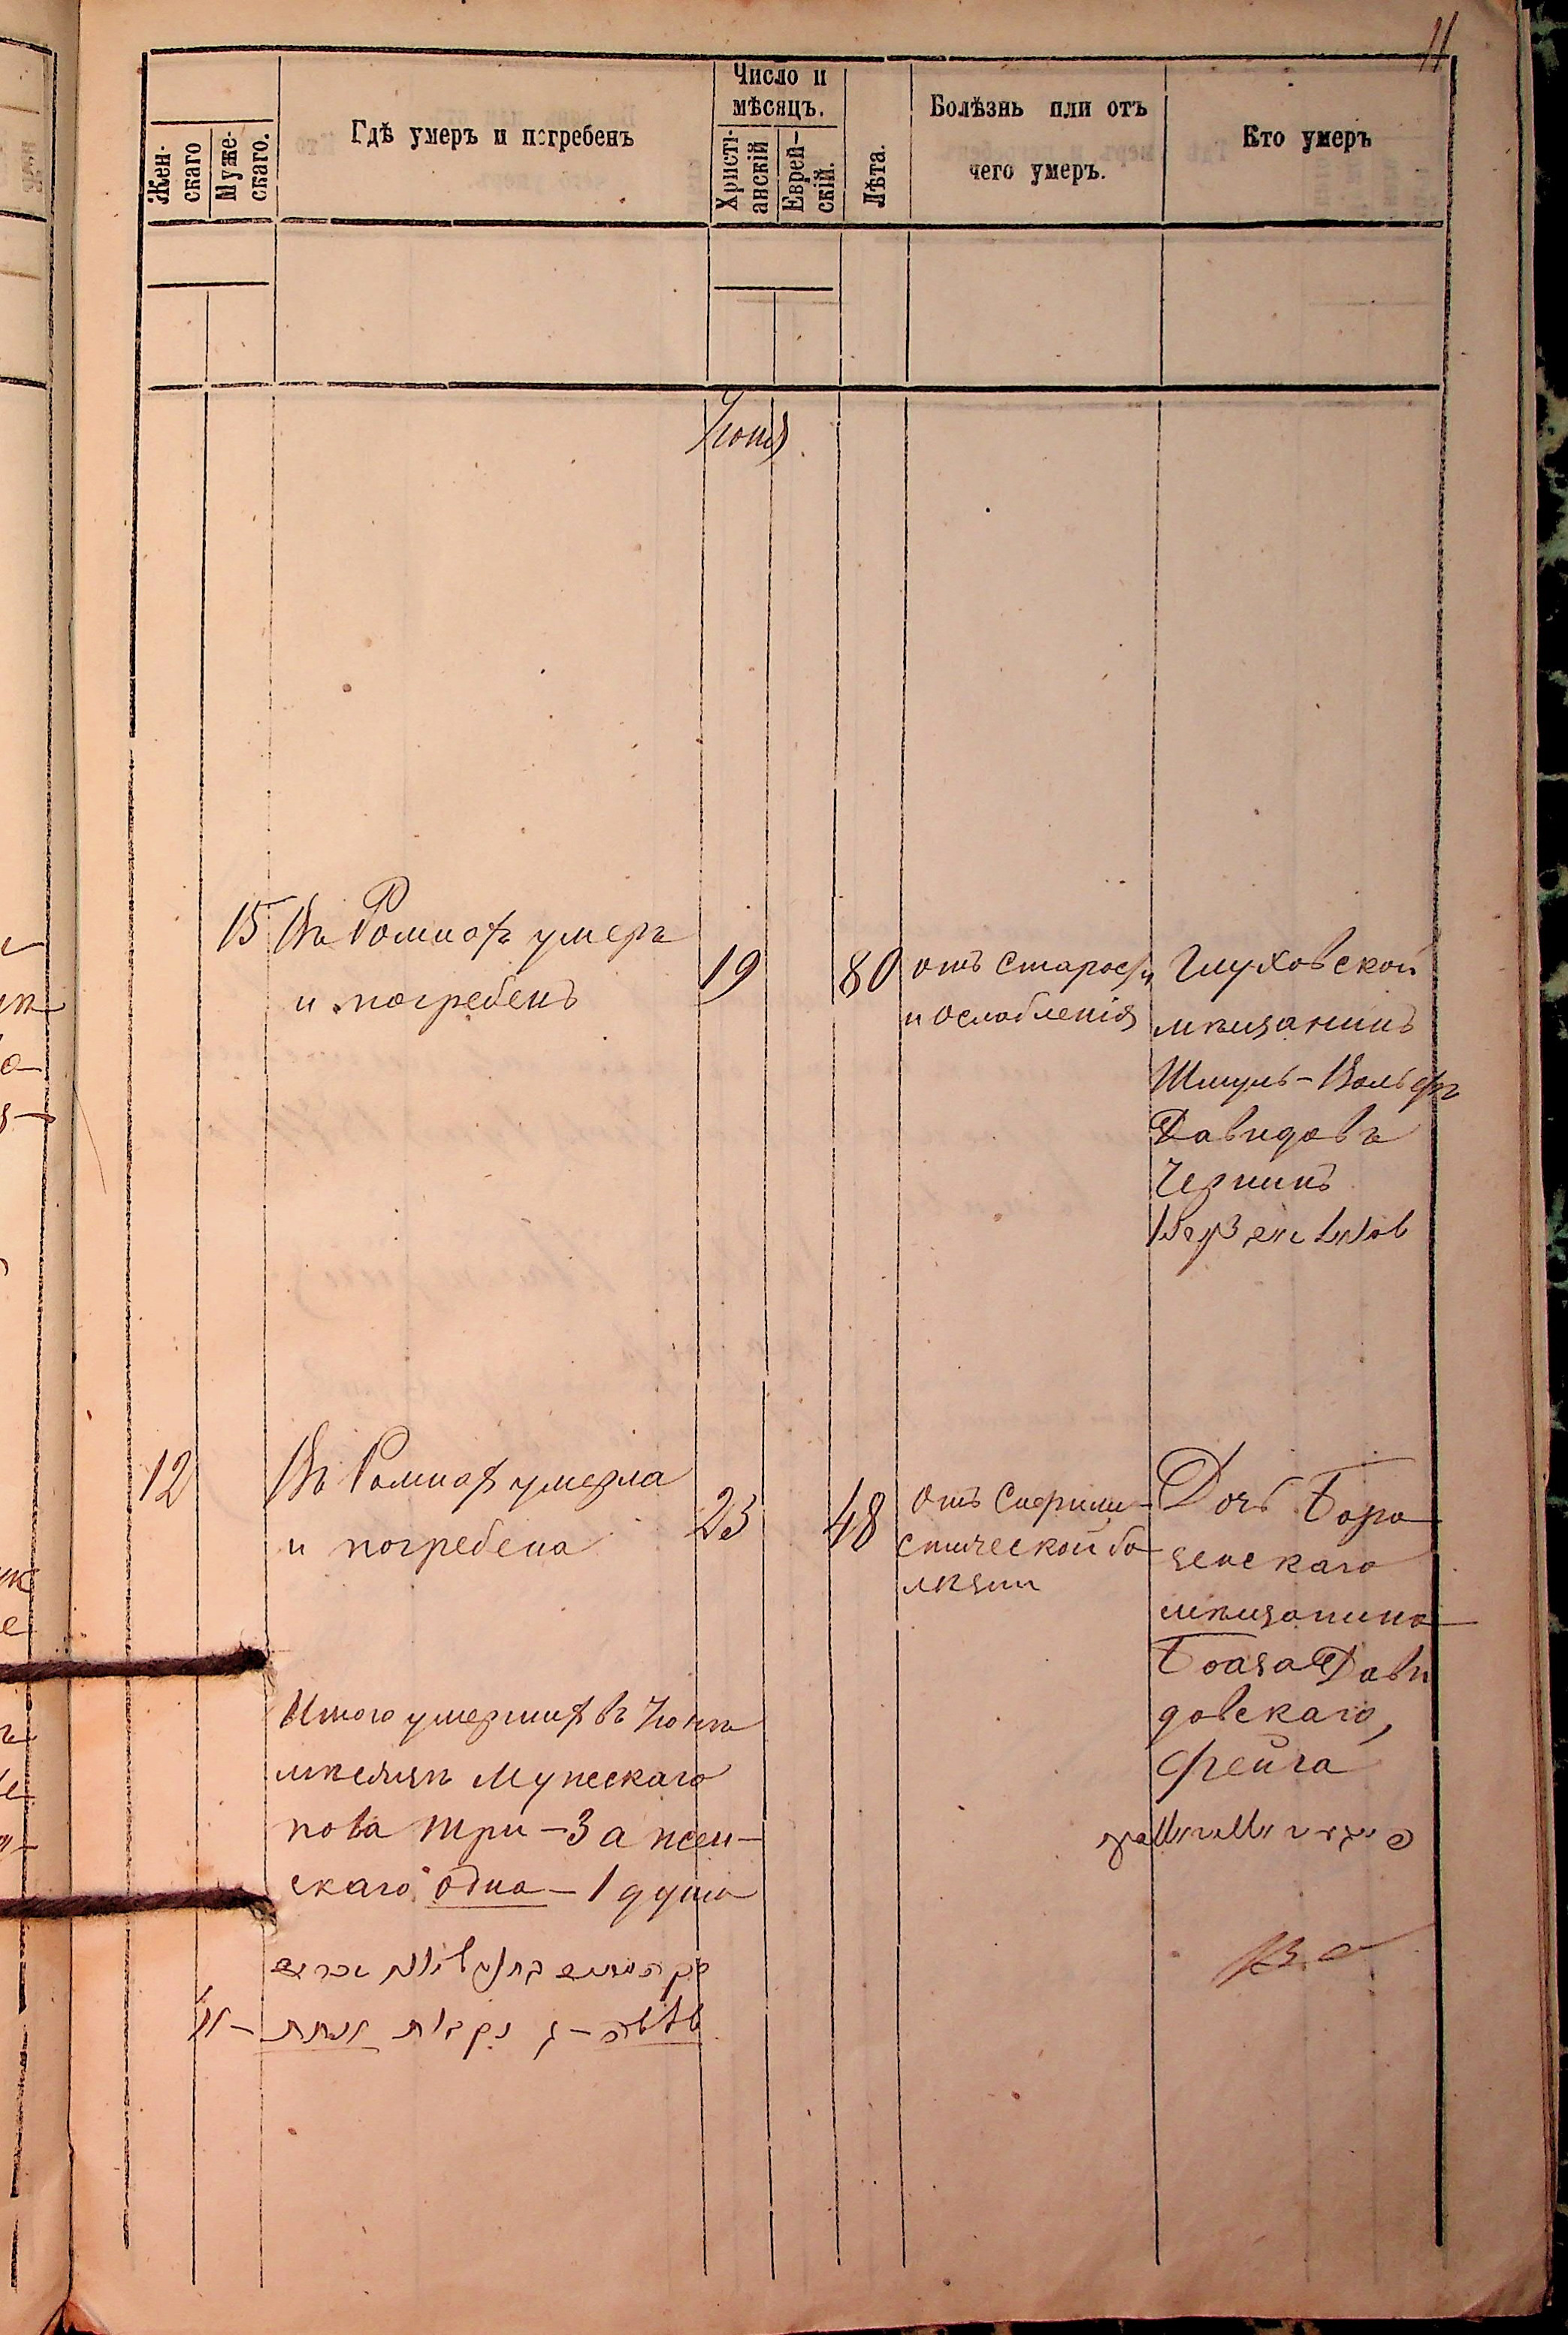 11
Жен-
скаго
Муже-
скаго.
Гдѣ умеръ и погребенъ
Число и
мѣсяцъ.
Христі-
анскій
Еврей-
скій.
Лѣта.
Болѣзнь или отъ
чего умеръ.
Кто умеръ
Іюня
15 Въ Ромнахъ умеръ
и погребенъ
19
80
отъ старости
и ослабленія
Глуховской
мѣщанинъ
Шмуль-Вольфъ
Давидовъ
Чернинъ
12
Въ Ромнахъ умерла
и погребена
23
48
отъ
стической бо
лѣзни
Дочь Борз
енскаго
мѣщанина
Боаза Дави
довскаго,
Фейга
Итого умершихъ въ Іюнѣ
мѣсяцѣ Мужескаго
пола три - 3 а жен-
скаго одна - 1 душа